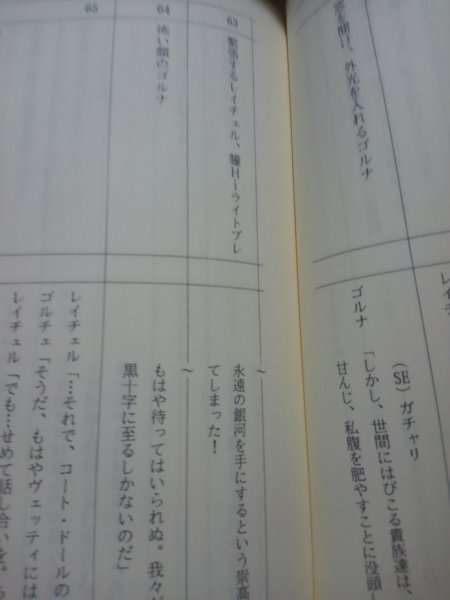 窓を開け、外光を入れるゴルナ
(SE)ガチャリ
ゴルナ 「しかし、世間にはびこる貴族達は、
甘んじ、私腹を肥やすことに没頭
63
緊張するレイチェル、瞳Hiライトブレ
～
永遠の銀河を手にするという崇高
てしまった！
64
怖い顔のゴルナ
～
もはや待ってはいられぬ。我々が
黒十字に至るしかないのだ」
65
レイチェル「…それで、コート・ドールの
ゴルチェ「そうだ、もはやヴェッティには
レイチェル「でも…せめて話し合いを。